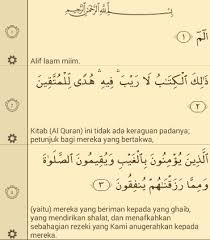 بِسْمِ اللَّهِ الرَّحْمَٰنِ الرَّحِيمِ
الٓمٓ ﴿١﴾
Alif laam miim.
ذَٰلِكَ الْكِتَابُ لَا رَيْبَ ۛ فِيهِ ۛ هُدًى لِّلْمُتَّقِينَ
﴿٢﴾
Kitab (Al Quran) ini tidak ada keraguan padanya;
petunjuk bagi mereka yang bertakwa,
الَّذِينَ يُؤْمِنُونَ بِالْغَيْبِ وَيُقِيمُونَ الصَّلَوٰةَ
وَمِمَّا رَزَقْنَٰهُمْ يُنفِقُونَ ﴿٣﴾
(yaitu) mereka yang beriman kepada yang ghaib,
yang mendirikan shalat, dan menafkahkan
sebahagian rezeki yang Kami anugerahkan kepada
mereka.